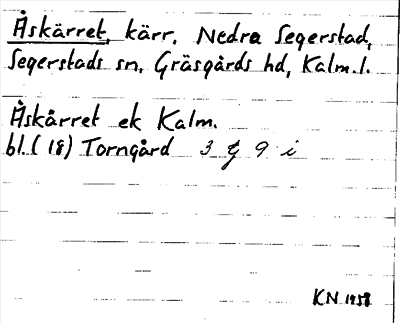 Åskärret, kärr, Nedra Segerstad,
Segerstads sn, Gräsgårds hd, Kalm.l.
Åskärret ek Kalm.
bl. (18) Torngård 3 g 9 i
KN 1958